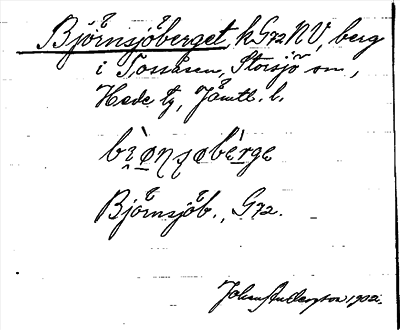 Björnsjöberget, k G72 NV, berg
i Tossåsen, Storsjö sn,
Hede tg, Jämtl. l.
bi̯ònʂøbèrge
Björnsjöb., G72.
Johan Anderzson 1902.